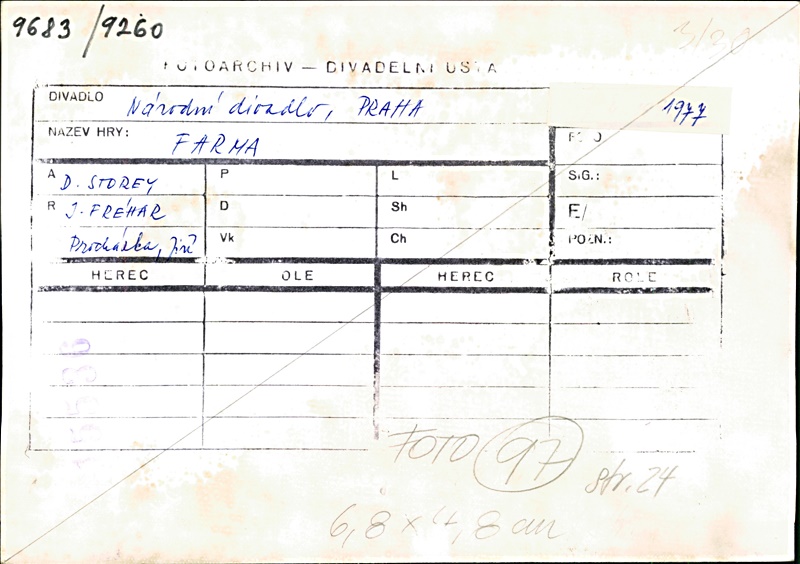 9683/9260
3/30
FOTOARCHIV — DIVADELNÍ ÚSTA
DIVADLO Národní divadlo, PRAHA 1977
NÁZEV HRY: FARMA
A D. STOREY P L SIG.:
R J. FRÉHAR D Sh F/
Procházka, Jiří Vk Ch POZN.:
HEREC OLE HEREC ROLE
FOTO 97 str. 24
6,8 x 4,8 cm